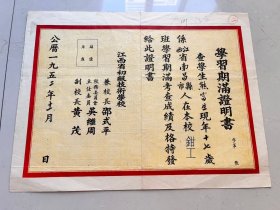 學習期滿證明書
查學生熊 現年十七歲
係江西省南昌市縣人在本校鉗工
班學習期滿考查成績及格特發
給此證明書
江西省初級技術學校
兼校長邵式平
主任委員吳繼周
副校長黃茂
公曆一九五三年 月 日